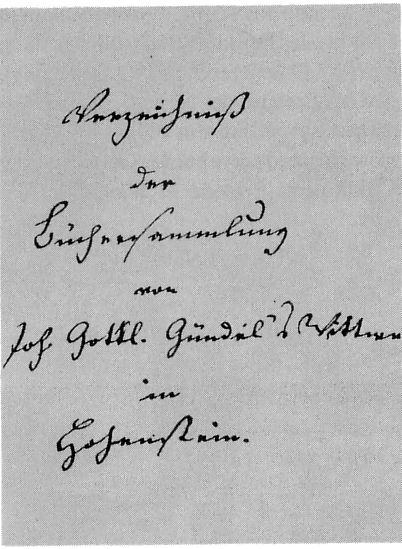 Verzeichniß
der
Büchersammlung
von
Joh Gottl. Gündel's Wittwe
in
Hohenstein.